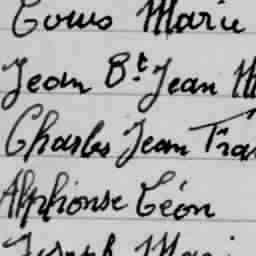 Louis Marie
Jean Bt Jean M
Charles Jean Fra
Alphonse Léon
Joseph Mari